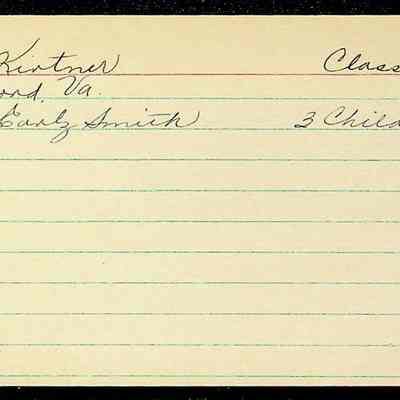 Kirtner Class
ord, Va.
Smith 3 Child